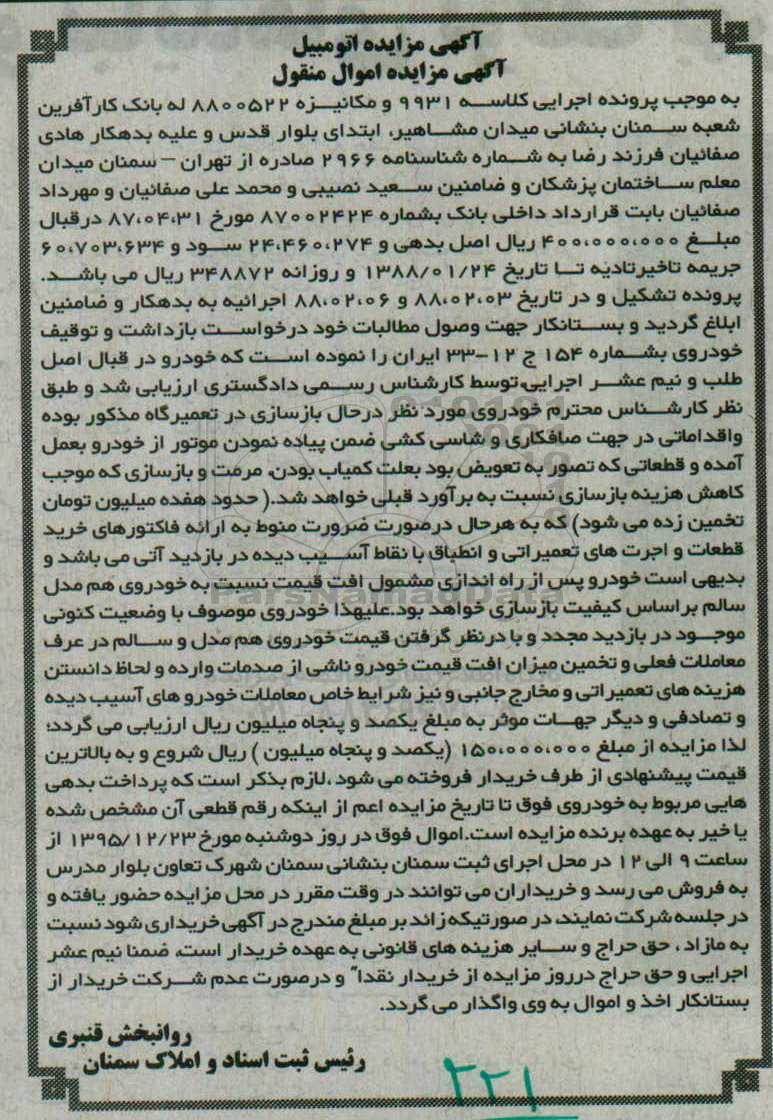 آگهی مزایده اتومبیل
آگهی مزایده اموال منقول
به موجب پرونده اجرایی کلاسه ۹۹۳۱ و مکانیزه ۸۸۰۰۵۲۲ له بانک کارآفرین
شعبه سمنان بنشانی میدان مشاهیر، ابتدای بلوار قدس و علیه بدهکار هادی
صفائیان فرزند رضا به شماره شناسنامه ۲۹۶۶ صادره از تهران – سمنان میدان
معلم ساختمان پزشکان و ضامنین سعید نصیبی و محمد علی صفائیان و مهرداد
صفائیان بابت قرارداد داخلی بانک بشماره ۸۷۰۰۲۴۲۴ مورخ ۸۷،۰۴،۳۱ درقبال
مبلغ ۴۰۰،۰۰۰،۰۰۰ ریال اصل بدهی و ۲۴،۴۶۰،۲۷۴ سود و ۶۰،۷۰۳،۶۳۴
جریمه تاخیرتادیه تا تاریخ ۱۳۸۸/۰۱/۲۴ و روزانه ۳۴۸۸۷۲ ریال می باشد.
پرونده تشکیل و در تاریخ ۸۸،۰۲،۰۳ و ۸۸،۰۲،۰۶ اجرائیه به بدهکار و ضامنین
ابلاغ گردید و بستانکار جهت وصول مطالبات خود درخواست بازداشت و توقیف
خودروی بشماره ۱۵۴ ج ۱۲–۳۳ ایران را نموده است که خودرو در قبال اصل
طلب و نیم عشر اجرایی،توسط کارشناس رسمی دادگستری ارزیابی شد و طبق
نظر کارشناس محترم خودروی مورد نظر درحال بازسازی در تعمیرگاه مذکور بوده
واقداماتی در جهت صافکاری و شاسی کشی ضمن پیاده نمودن موتور از خودرو بعمل
آمده و قطعاتی که تصور به تعویض بود بعلت کمیاب بودن، مرمت و بازسازی که موجب
کاهش هزینه بازسازی نسبت به برآورد قبلی خواهد شد.( حدود هفده میلیون تومان
تخمین زده می شود) که به هرحال درصورت ضرورت منوط به ارائه فاکتورهای خرید
قطعات و اجرت های تعمیراتی و انطباق با نقاط آسیب دیده در بازدید آتی می باشد و
بدیهی است خودرو پس از راه اندازی مشمول افت قیمت نسبت به خودروی هم مدل
سالم براساس کیفیت بازسازی خواهد بود.علیهذا خودروی موصوف با وضعیت کنونی
موجود در بازدید مجدد و با درنظر گرفتن قیمت خودروی هم مدل و سالم در عرف
معاملات فعلی و تخمین میزان افت قیمت خودرو ناشی از صدمات وارده و لحاظ دانستن
هزینه های تعمیراتی و مخارج جانبی و نیز شرایط خاص معاملات خودرو های آسیب دیده
و تصادفی و دیگر جهات موثر به مبلغ یکصد و پنجاه میلیون ریال ارزیابی می گردد؛
لذا مزایده از مبلغ ۱۵۰،۰۰۰،۰۰۰ (یکصد و پنجاه میلیون ) ریال شروع و به بالاترین
قیمت پیشنهادی از طرف خریدار فروخته می شود ،لازم بذکر است که پرداخت بدهی
هایی مربوط به خودروی فوق تا تاریخ مزایده اعم از اینکه رقم قطعی آن مشخص شده
یا خیر به عهده برنده مزایده است.اموال فوق در روز دوشنبه مورخ ۱۳۹۵/۱۲/۲۳ از
ساعت ۹ الی ۱۲ در محل اجرای ثبت سمنان بنشانی سمنان شهرک تعاون بلوار مدرس
به فروش می رسد و خریداران می توانند در وقت مقرر در محل مزایده حضور یافته و
در جلسه شرکت نمایند، در صورتیکه زائد بر مبلغ مندرج در آگهی خریداری شود نسبت
به مازاد ، حق حراج و سایر هزینه های قانونی به عهده خریدار است، ضمنا نیم عشر
اجرایی و حق حراج درروز مزایده از خریدار نقداً و درصورت عدم شرکت خریدار از
بستانکار اخذ و اموال به وی واگذار می گردد.
روانبخش قنبری
رئیس ثبت اسناد و املاک سمنان
۲۲۱
ParsNamadData